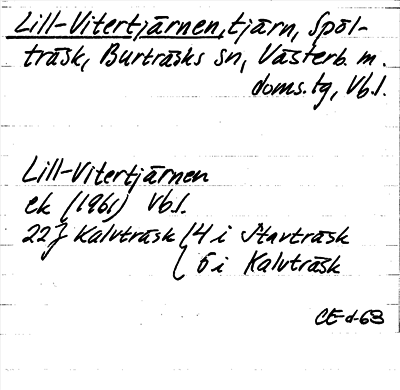 Lill-Vitertjärnen, tjärn, Spöl-
träsk, Burträsks sn, Västerb. m.
doms.tg, Vb.l.
Lill-Vitertjärnen
ek (1961) Vb.l.
22J Kalvträsk 4 i Stavträsk
5 i Kalvträsk
CE-d-63